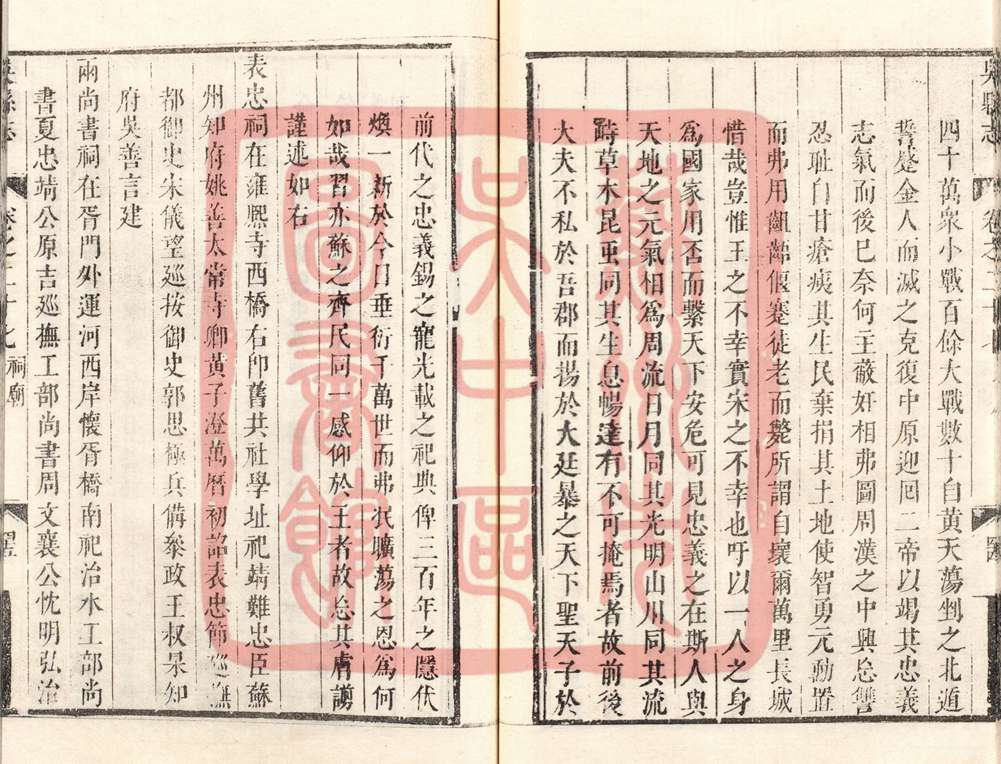 吳縣志 卷之二十七
四十萬衆小戰百餘大戰數十自黃天蕩剉之北遁
誓蹙金人而滅之克復中原迎囘二帝以竭其忠義
志氣而後巳奈何王蔽奸相弗圖周漢之中興忘讐
忍耻自甘瘡痍其生民棄捐其土地使智勇元勳置
而弗用齟齬偃蹇徒老而斃所謂自壞爾萬里長城
惜哉豈惟王之不幸實宋之不幸也吁以一人之身
爲國家用否而繫天下安危可見忠義之在斯人與
天地之元氣相爲周流日月同其光明山川同其流
峙草木昆虫同其生息暢達有不可掩焉者故前後
大夫不私於吾郡而揚於大廷暴之天下聖天子於
前代之忠義錫之寵光載之祀典俾三百年之隱伏
煥一新於今日垂衍千萬世而弗泯曠蕩之恩爲何
如哉習亦蘇之齊民同一感仰於王者故忘其膚謭
謹述如右
表忠祠在雍熙寺西橋右卽舊共社學址祀靖難忠臣蘇
州知府姚善太常寺卿黃子澄萬曆初詔表忠節巡撫
都御史宋儀望巡按御史郭思極兵備叅政王叔杲知
府吳善言建
兩尚書祠在胥門外運河西岸懷胥橋南祀治水工部尚
書夏忠靖公原吉巡撫工部尚書周文襄公忱明弘治
吳縣志 卷之二十七 祠廟